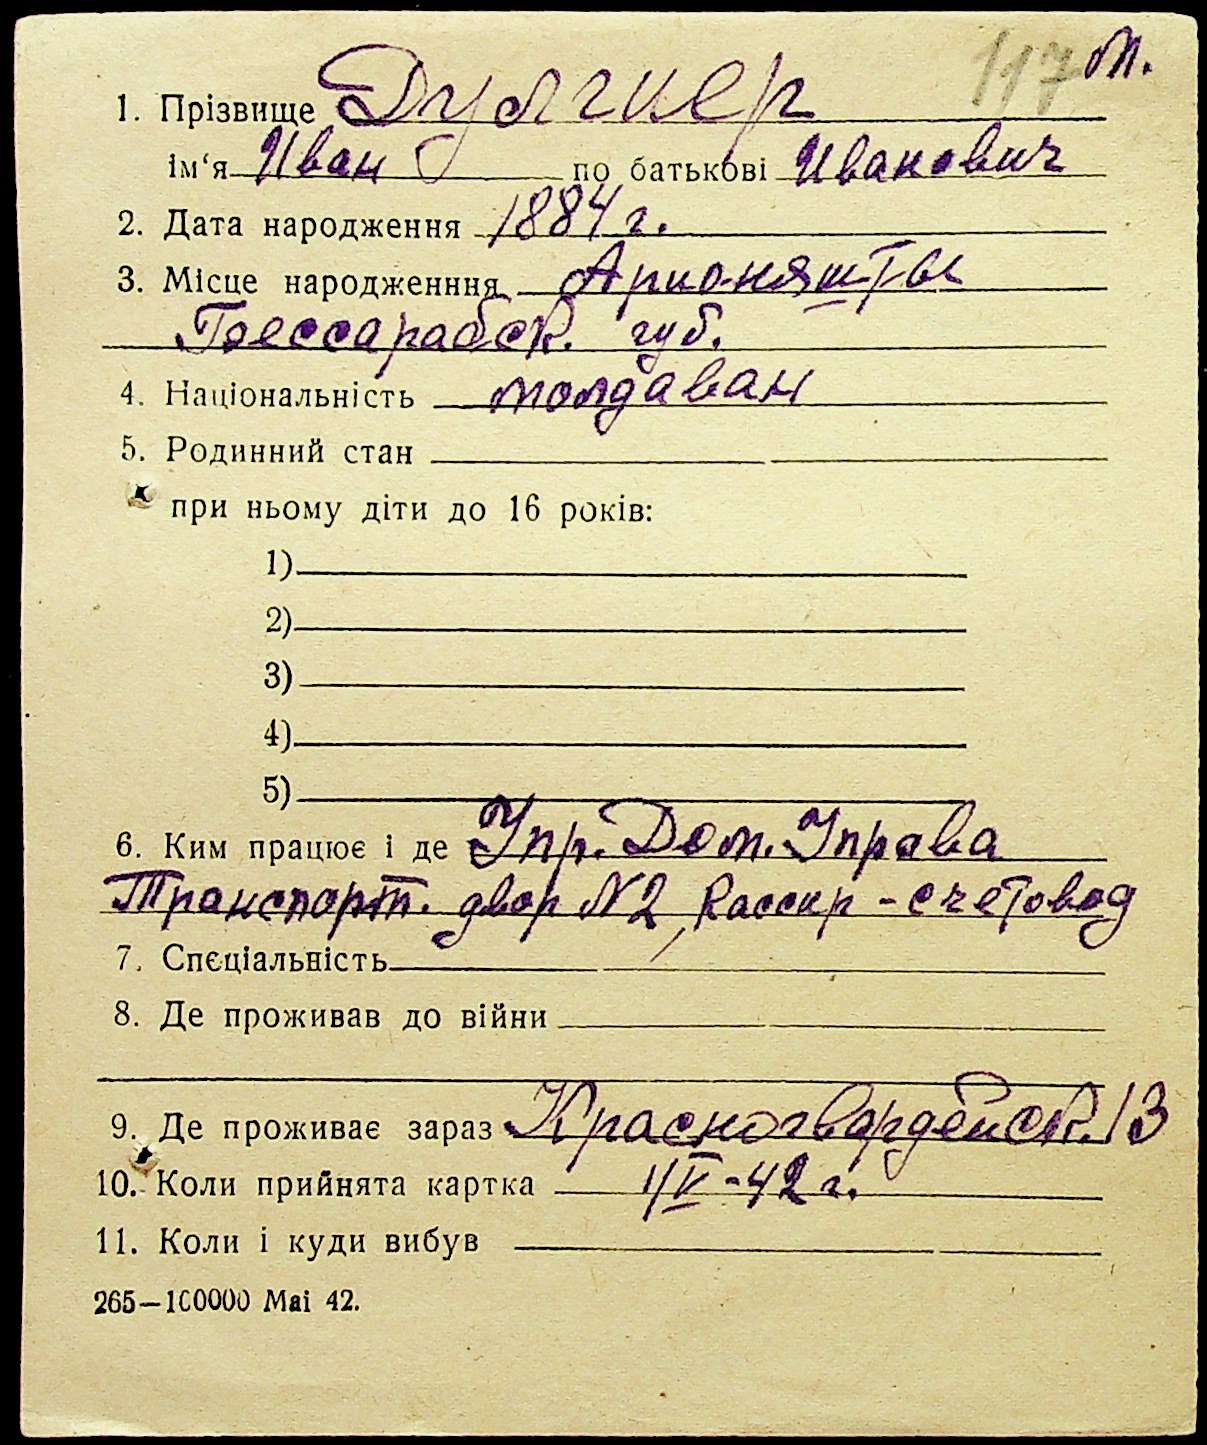 117 м.
1. Прізвище Дулгиер
ім‘я Иван по батькові Иванович
2. Дата народження 1884 г.
3. Місце народженння Арионяшты
Бессарабск. губ.
4. Національність молдаван
5. Родинний стан
при ньому діти до 16 років:
1)
2)
3)
4)
5)
6. Ким працює і де Упр. Дом. Управа
Транспорт. двор №2, кассир - счетовод
7. Спєціальність
8. Де проживав до війни
9. Де проживає зараз Красногвардейск. 13
10. Коли прийнята картка 1/V - 42 г.
11. Коли і куди вибув
265—100000 Маі 42.